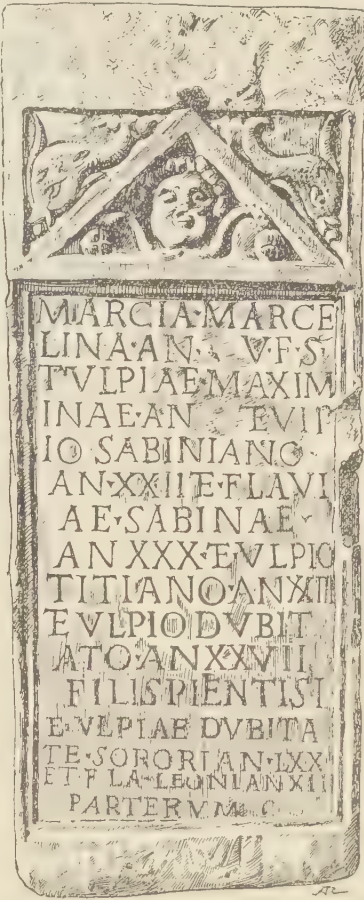 MARCIA·MARCE
LINA·AN V·F·S·
T VLPIAE·MAXIM
INAE·AN
IO SABINIANO
AN·XXII E·FLAVI
AE·SABINAE·
AN XXX·E·VLPIO
TITIANO·AN
E VLPIO DVBIT
ATO·AN XXVII
FILIS PIENTISI
E·VLPIAE DVBITA
TE·SORORI AN·LXX
ET FLA·LEONI AN XII
PARTERVM C